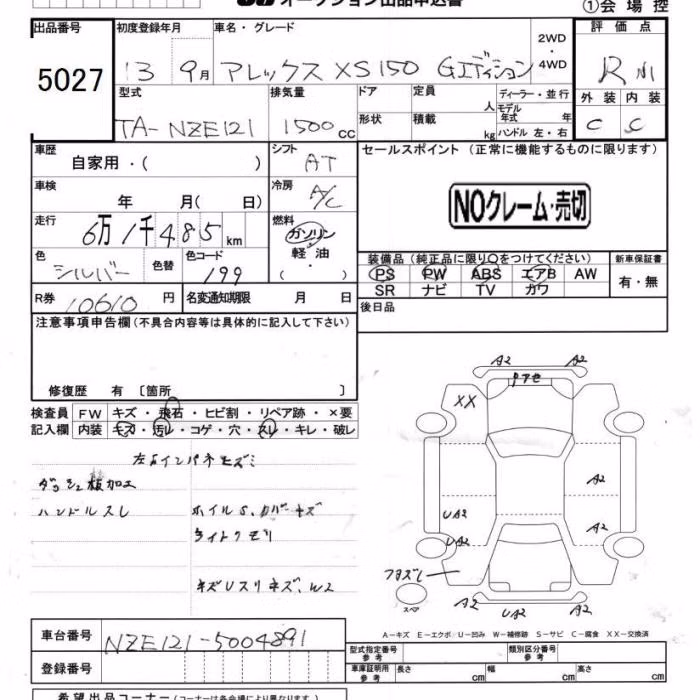 オークション出品申込書
①会場控
出品番号 初度登録年月 車名・グレード 評価点
5027 13 9月 アレックス XS150 Gエディション 2WD・4WD R
型式 排気量 ドア 定員 人 ディーラー・並行 外装 内装
TA-NZE121 1500cc 形状 積載 kg モデル年式 年 ハンドル 左・右 C C
車歴 自家用・( ) シフト AT セールスポイント（正常に機能するものに限ります）
車検 年 月( 日) 冷房 A/C
NOクレーム・売切
走行 6万1千485km 燃料 ガソリン・軽油・( )
色 シルバー 色替 色コード 199
装備品（純正品に限り○をつけてください） 新車保証書
PS PW ABS エアB AW
SR ナビ TV カワ 有・無
R券 10610円 名変通知期限 月 日 後日品
注意事項申告欄(不具合内容等は具体的に記入して下さい)
修復歴 有〔箇所 〕
検査員 FW キズ・飛石・ヒビ割・リペア跡・×要
記入欄 内装 キズ・汚レ・コゲ・穴・スレ・キレ・破レ
ダッシュ板加工
ハンドルスレ
ライトクモリ
A2 A2
XX
A2
UA2 A2
UA2
スペア
A2 UA2 A2
A-キズ E-エクボ U-凹み W-補修跡 S-サビ C-腐食 XX-交換済
車台番号 NZE121-5004891
登録番号
型式指定番号 参考 類別区分番号 参考
車庫証明用 参考 長さ cm 幅 cm 高さ cm
希望出品コーナー(コーナーは各会場により異なります。)